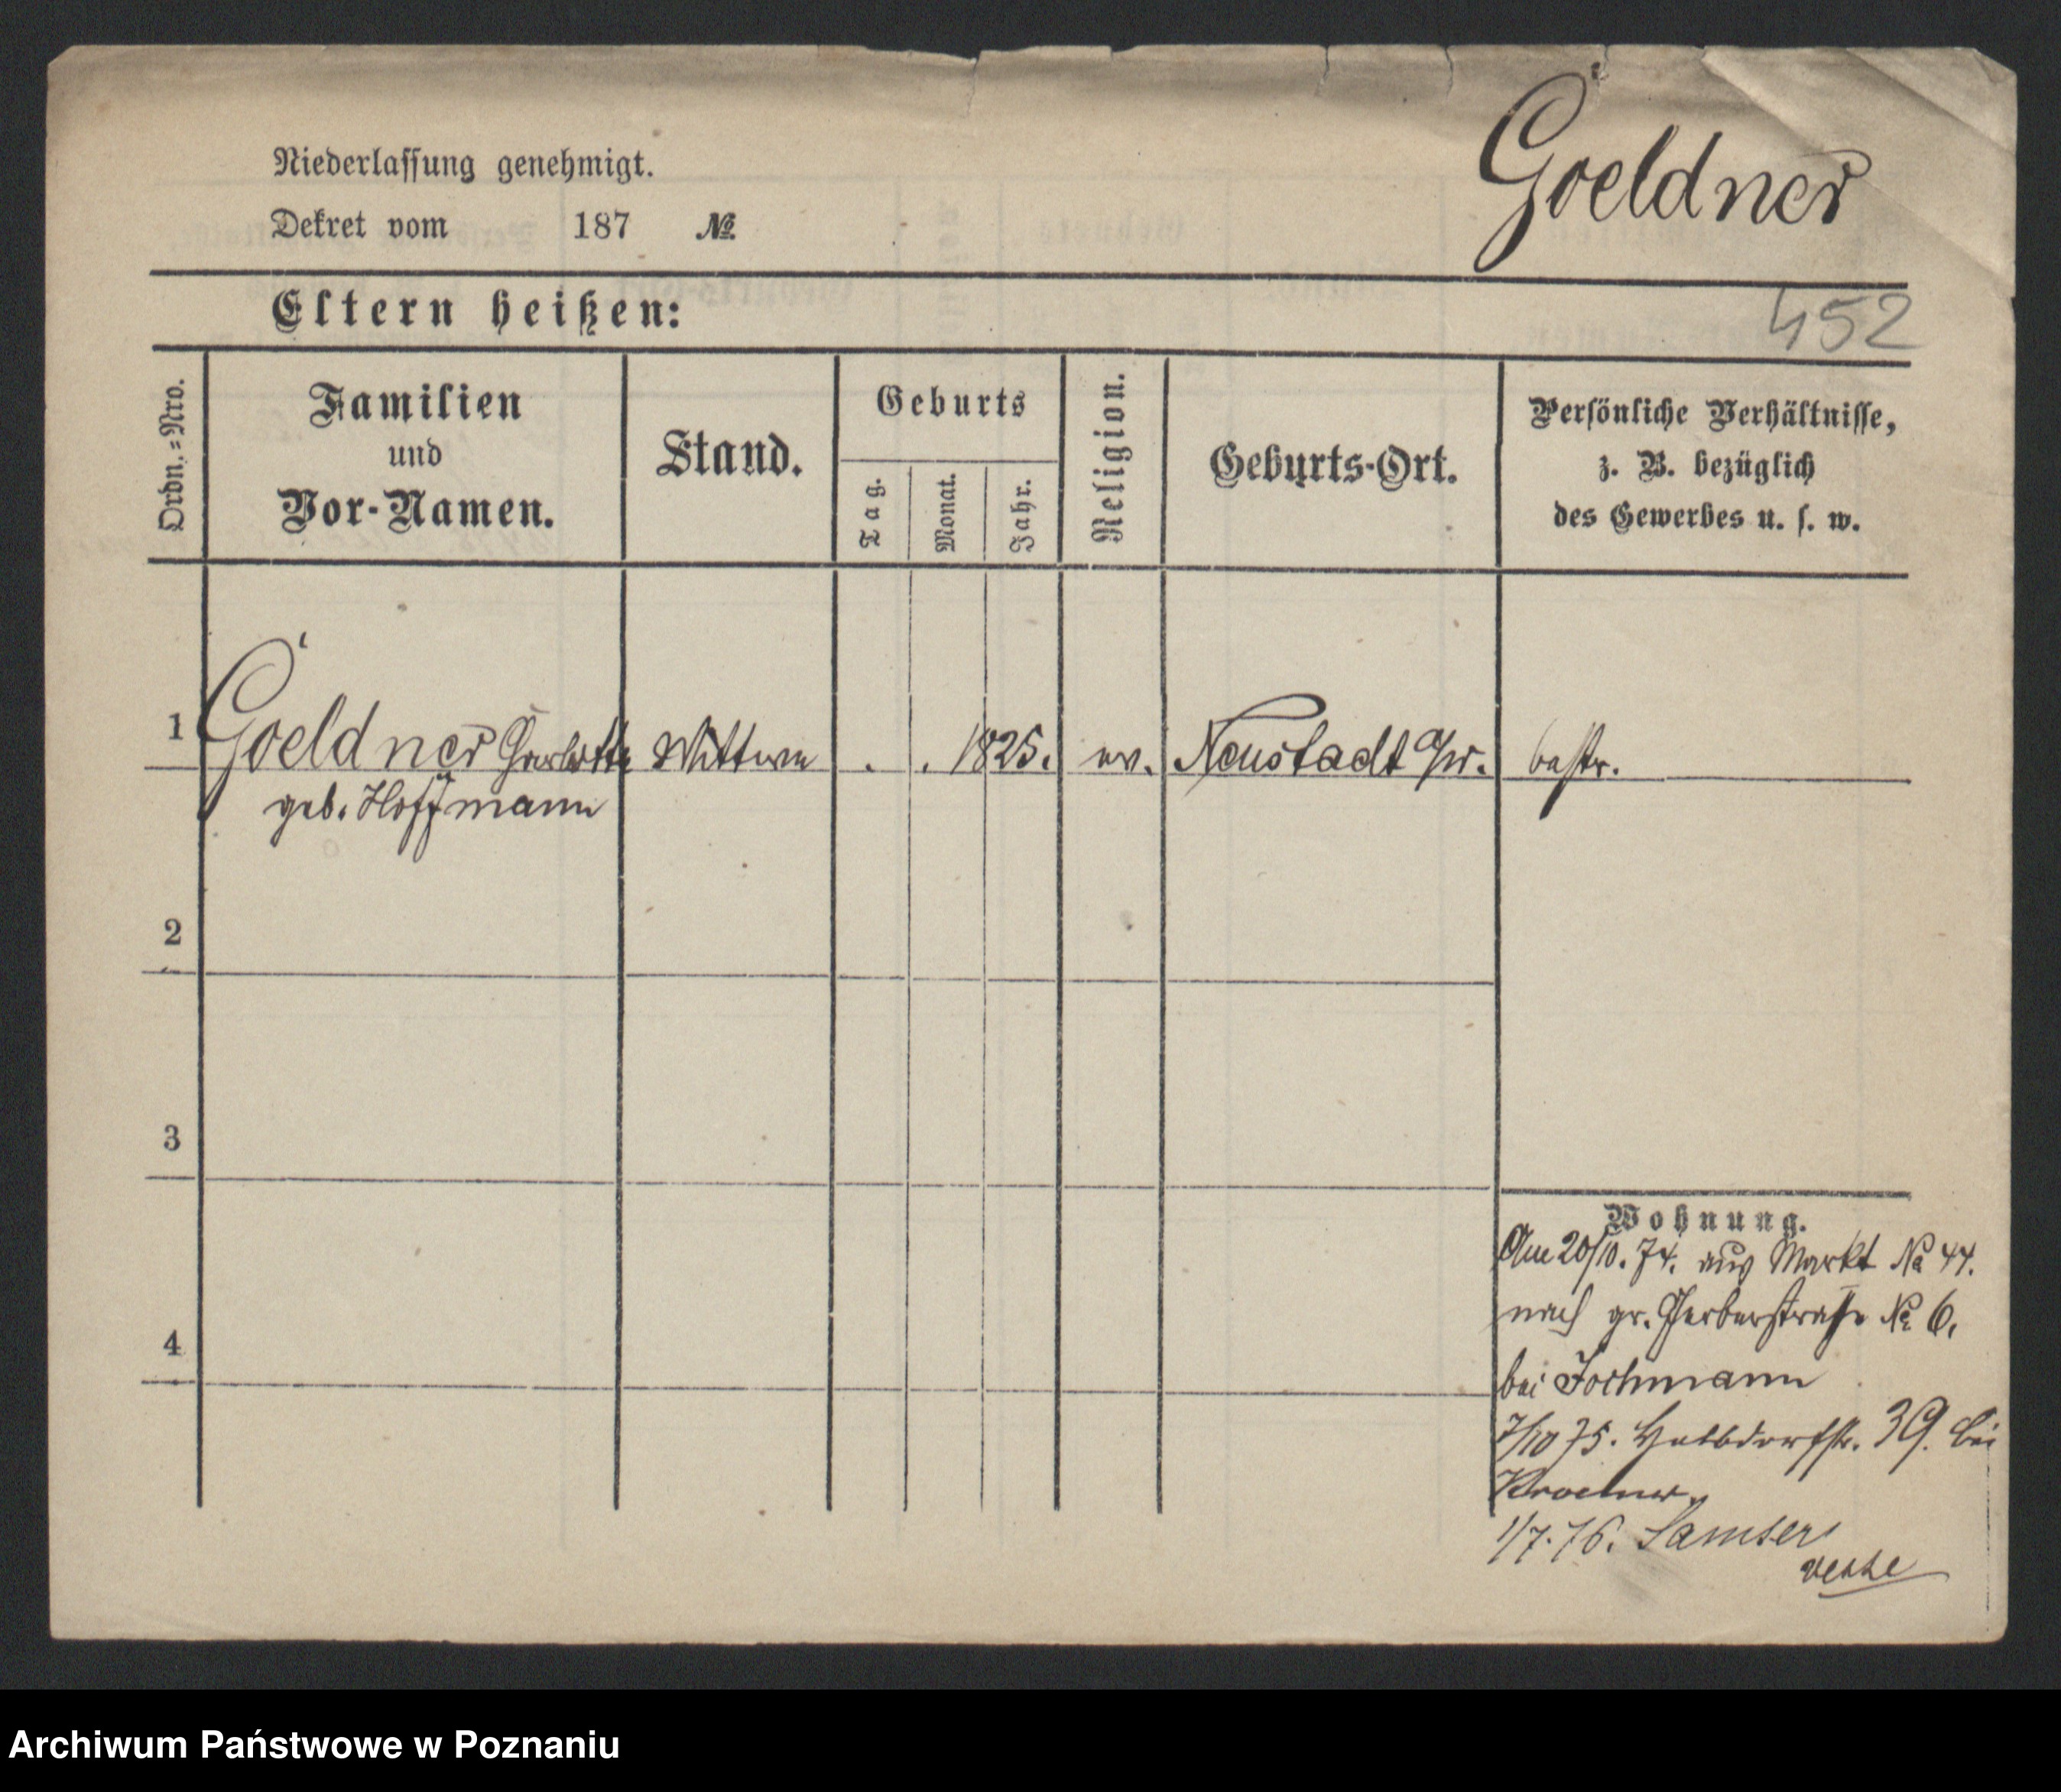 Goeldner
Niederlassung genehmigt.
Dekret vom 187 №
Eltern heißen:
452
Ordn.=Nro.
Familien
und
Vor-Namen.
Stand.
Geburts
Tag.
Monat.
Jahr.
Religion.
Geburts-Ort.
Persönliche Verhältnisse,
z. B. bezüglich
des Gewerbes u. s. w.
1 Goeldner Charlotte Wittwe . . 1825. ev. Neustadt
geb. Hoffmann
2
3
4
Wohnung.
Am 20/10. 74. aus Markt № 44.
nach gr. Gerberstraße № 6.
bei Jochmann
7/10 75. Halbdorfstr. 39. bei
1/7. 76.
Archiwum Państwowe w Poznaniu